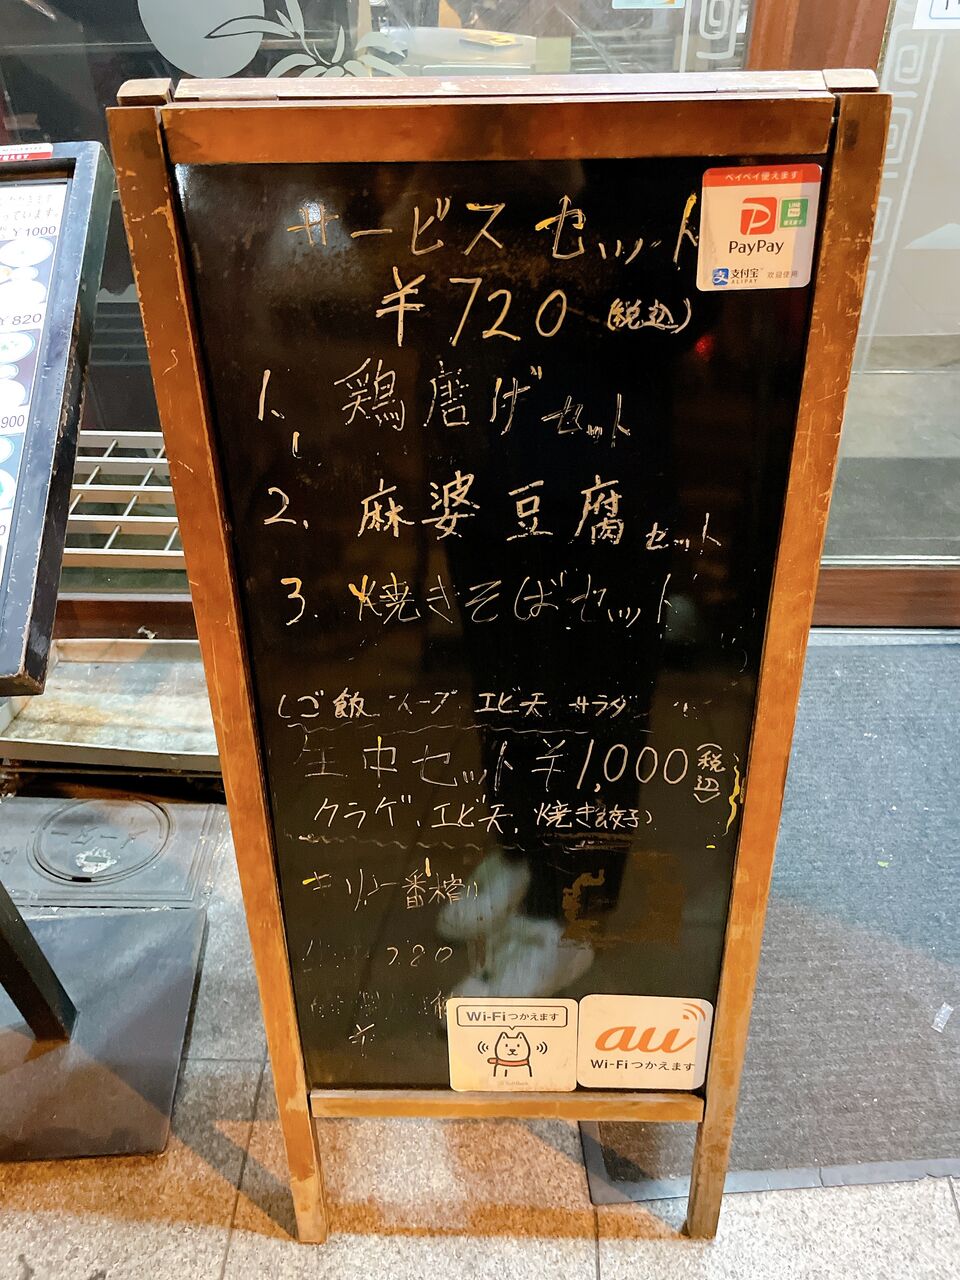 サービスセット
¥720 (税込)
1. 鶏唐げセット
2. 麻婆豆腐セット
3. 焼きそばセット
(ご飯 スープ エビ天 サラダ
生中セット ¥1,000 (税込)
クラゲ、エビ天、焼き餃子
キリン一番搾り
ペイペイ使えます
PayPay
支付宝
ALIPAY
欢迎使用
Wi-Fiつかえます
SoftBank
au
Wi-Fiつかえます
¥1000
¥820
900